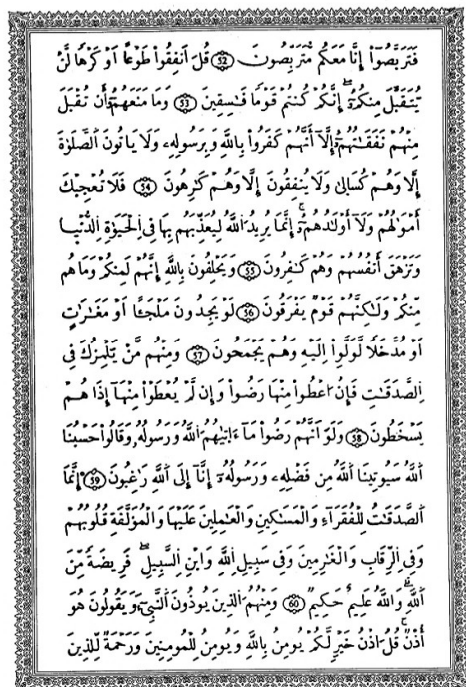 فَتَرَبَّصُوٓاْ إِنَّا مَعَكُم مُّتَرَبِّصُونَ 52 قُلَ اَنفِقُواْ طَوْعًا اَوْ كَرْهًا لَّنْ
يُّتَقَبَّلَ مِنكُمُۥٓ إِنَّكُمْ كُنتُمْ قَوْمًا فَٰسِقِينَ 53 وَمَا مَنَعَهُمُۥٓ أَن تُقْبَلَ
مِنْهُمْ نَفَقَٰتُهُمُۥٓ إِلَّآ أَنَّهُمْ كَفَرُواْ بِاللَّهِ وَبِرَسُولِهِۦ وَلَا يَاتُونَ اَلصَّلَوٰةَ
إِلَّا وَهُمْ كُسَالَىٰ وَلَا يُنفِقُونَ إِلَّا وَهُمْ كَٰرِهُونَ 54 فَلَا تُعْجِبْكَ
أَمْوَٰلُهُمْ وَلَآ أَوْلَٰدُهُمُۥٓ إِنَّمَا يُرِيدُ اُللَّهُ لِيُعَذِّبَهُم بِهَا فِے اِلْحَيَوٰةِ اِلدُّنْيَا
وَتَزْهَقَ أَنفُسُهُمْ وَهُمْ كَٰفِرُونَ 55 وَيَحْلِفُونَ بِاللَّهِ إِنَّهُمْ لَمِنكُمْ وَمَا هُم
مِّنكُمْ وَلَٰكِنَّهُمْ قَوْمٌ يَفْرَقُونَ 56 لَوْ يَجِدُونَ مَلْجَـًٔا اَوْ مَغَٰرَٰتٍ
اَوْ مُدَّخَلًا لَّوَلَّوِاْ اِلَيْهِ وَهُمْ يَجْمَحُونَ 57 وَمِنْهُم مَّنْ يَّلْمِزُكَ فِے
اِلصَّدَقَٰتِ فَإِنُ ا۟عْطُواْ مِنْهَا رَضُواْ وَإِن لَّمْ يُعْطَوْاْ مِنْهَآ إِذَا هُمْ
يَسْخَطُونَ 58 وَلَوَ اَنَّهُمْ رَضُواْ مَآ ءَاتَيٰهُمُ اُللَّهُ وَرَسُولُهُۥ وَقَالُواْ حَسْبُنَا
اَللَّهُ سَيُوتِينَا اَللَّهُ مِن فَضْلِهِۦ وَرَسُولُهُۥٓ إِنَّآ إِلَى اَللَّهِ رَٰغِبُونَ 59 إِنَّمَا
اَلصَّدَقَٰتُ لِلْفُقَرَآءِ وَالْمَسَٰكِينِ وَالْعَٰمِلِينَ عَلَيْهَا وَالْمُؤَلَّفَةِ قُلُوبُهُمْ
وَفِے اِلرِّقَابِ وَالْغَٰرِمِينَ وَفِے سَبِيلِ اِللَّهِ وَابْنِ اِلسَّبِيلِ فَرِيضَةً مِّنَ
اَللَّهِ وَاللَّهُ عَلِيمٌ حَكِيمٌ 60 وَمِنْهُمُ اُلذِينَ يُوذُونَ اَلنَّبِےٓءَ وَيَقُولُونَ هُوَ
أُذْنٌ قُلُ اذْنُ خَيْرٍ لَّكُمْ يُومِنُ بِاللَّهِ وَيُومِنُ لِلْمُومِنِينَ وَرَحْمَةٌ لِّلذِينَ